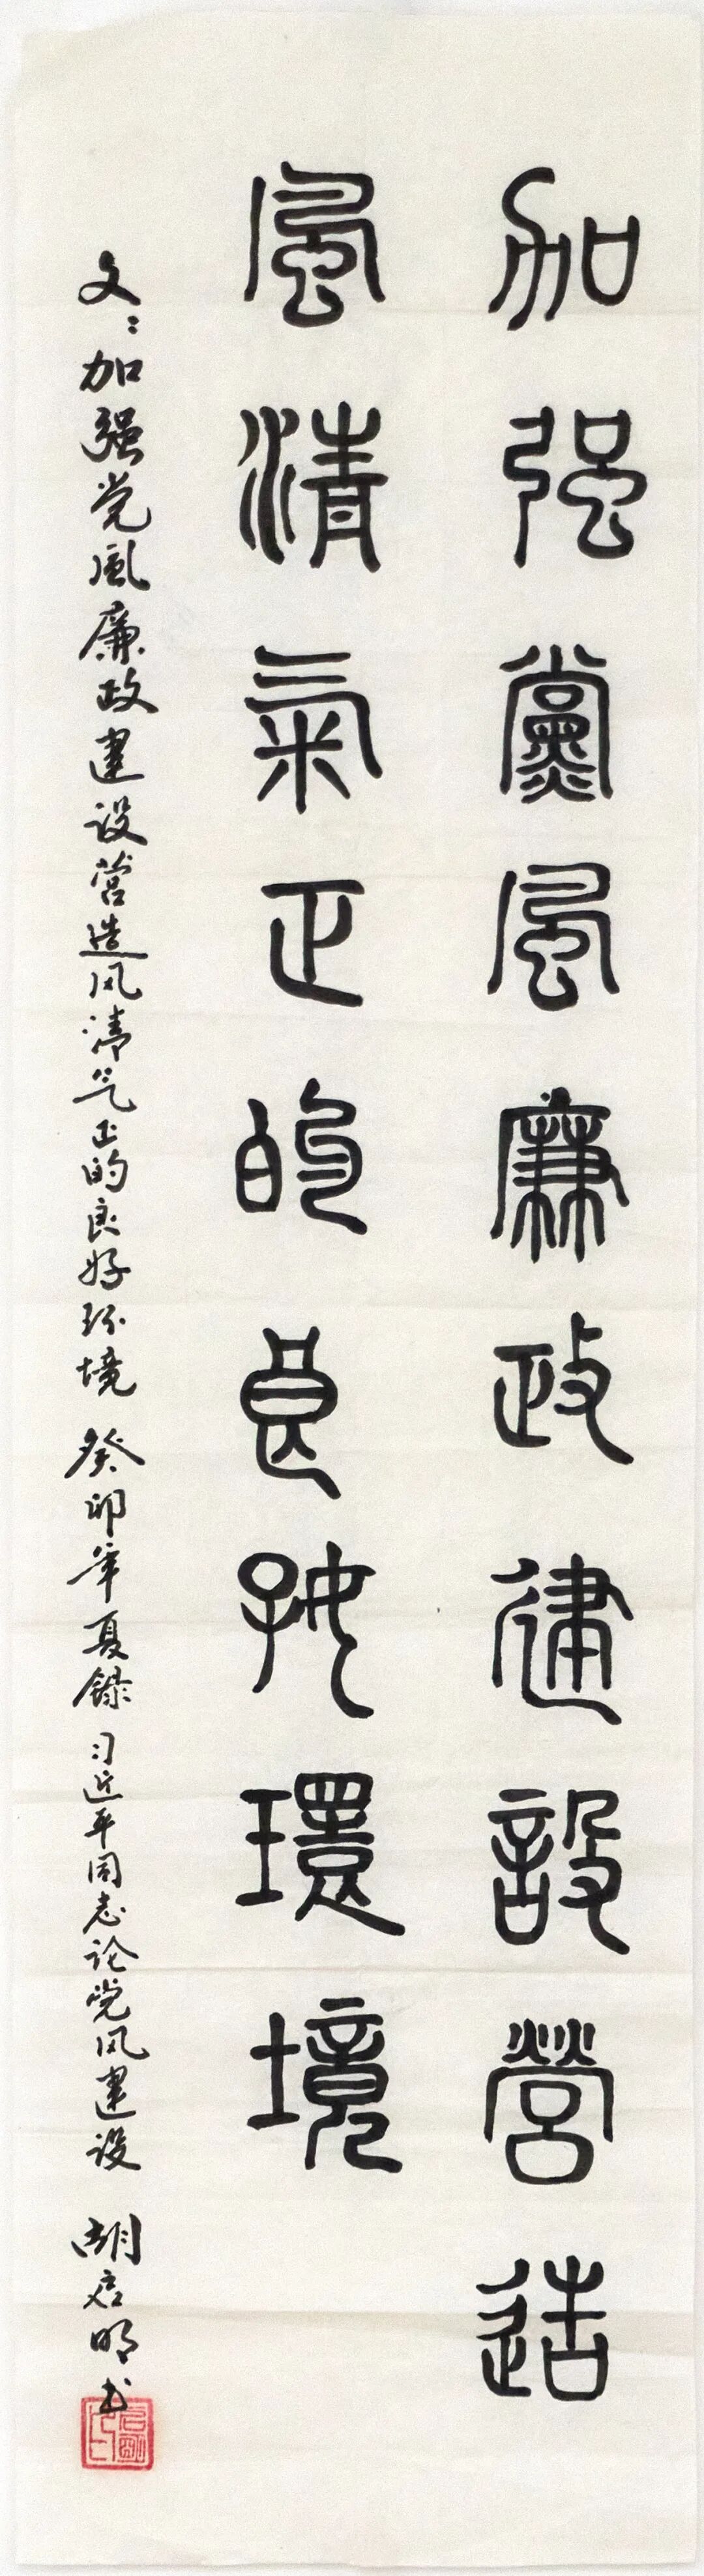 加强黨風廉政建設營造
風清氣正的良好環境
文：加强党風廉政建设营造风清气正的良好环境 癸卯年夏録 习近平同志论党风建设 胡启明书